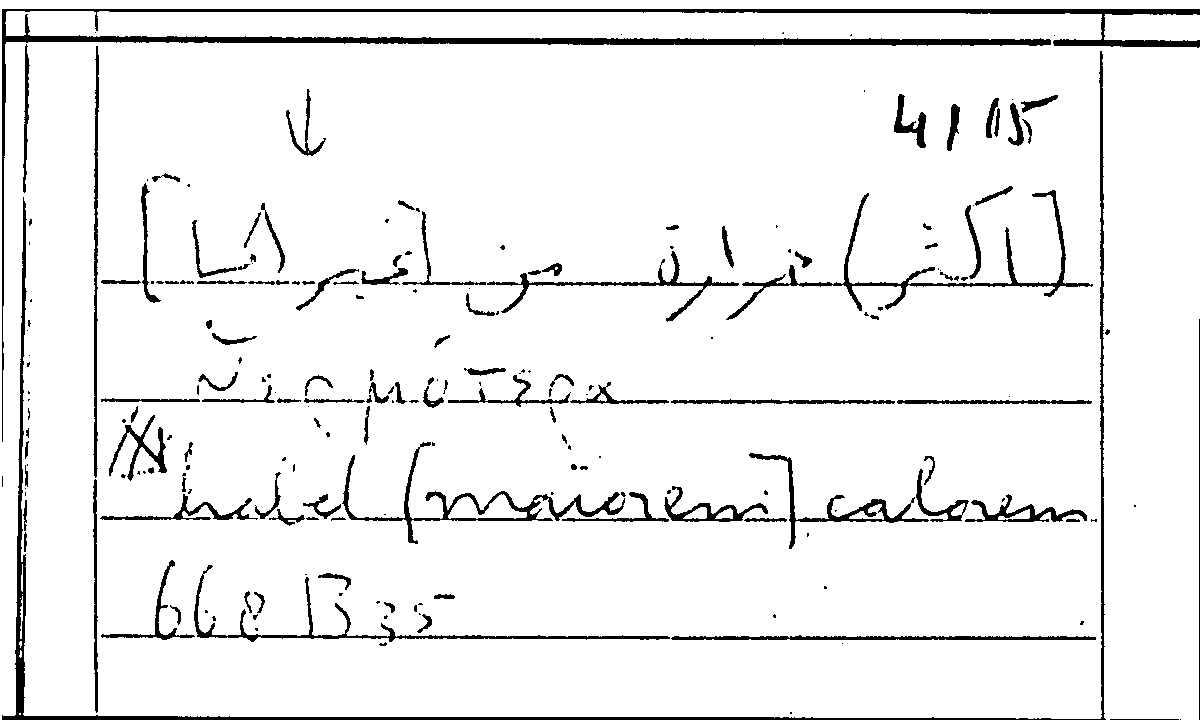 ↓ 4115
[اكثر) حرارة من [غيرها]
θερμότερα
habet [maiorem] calorem
668 B 35